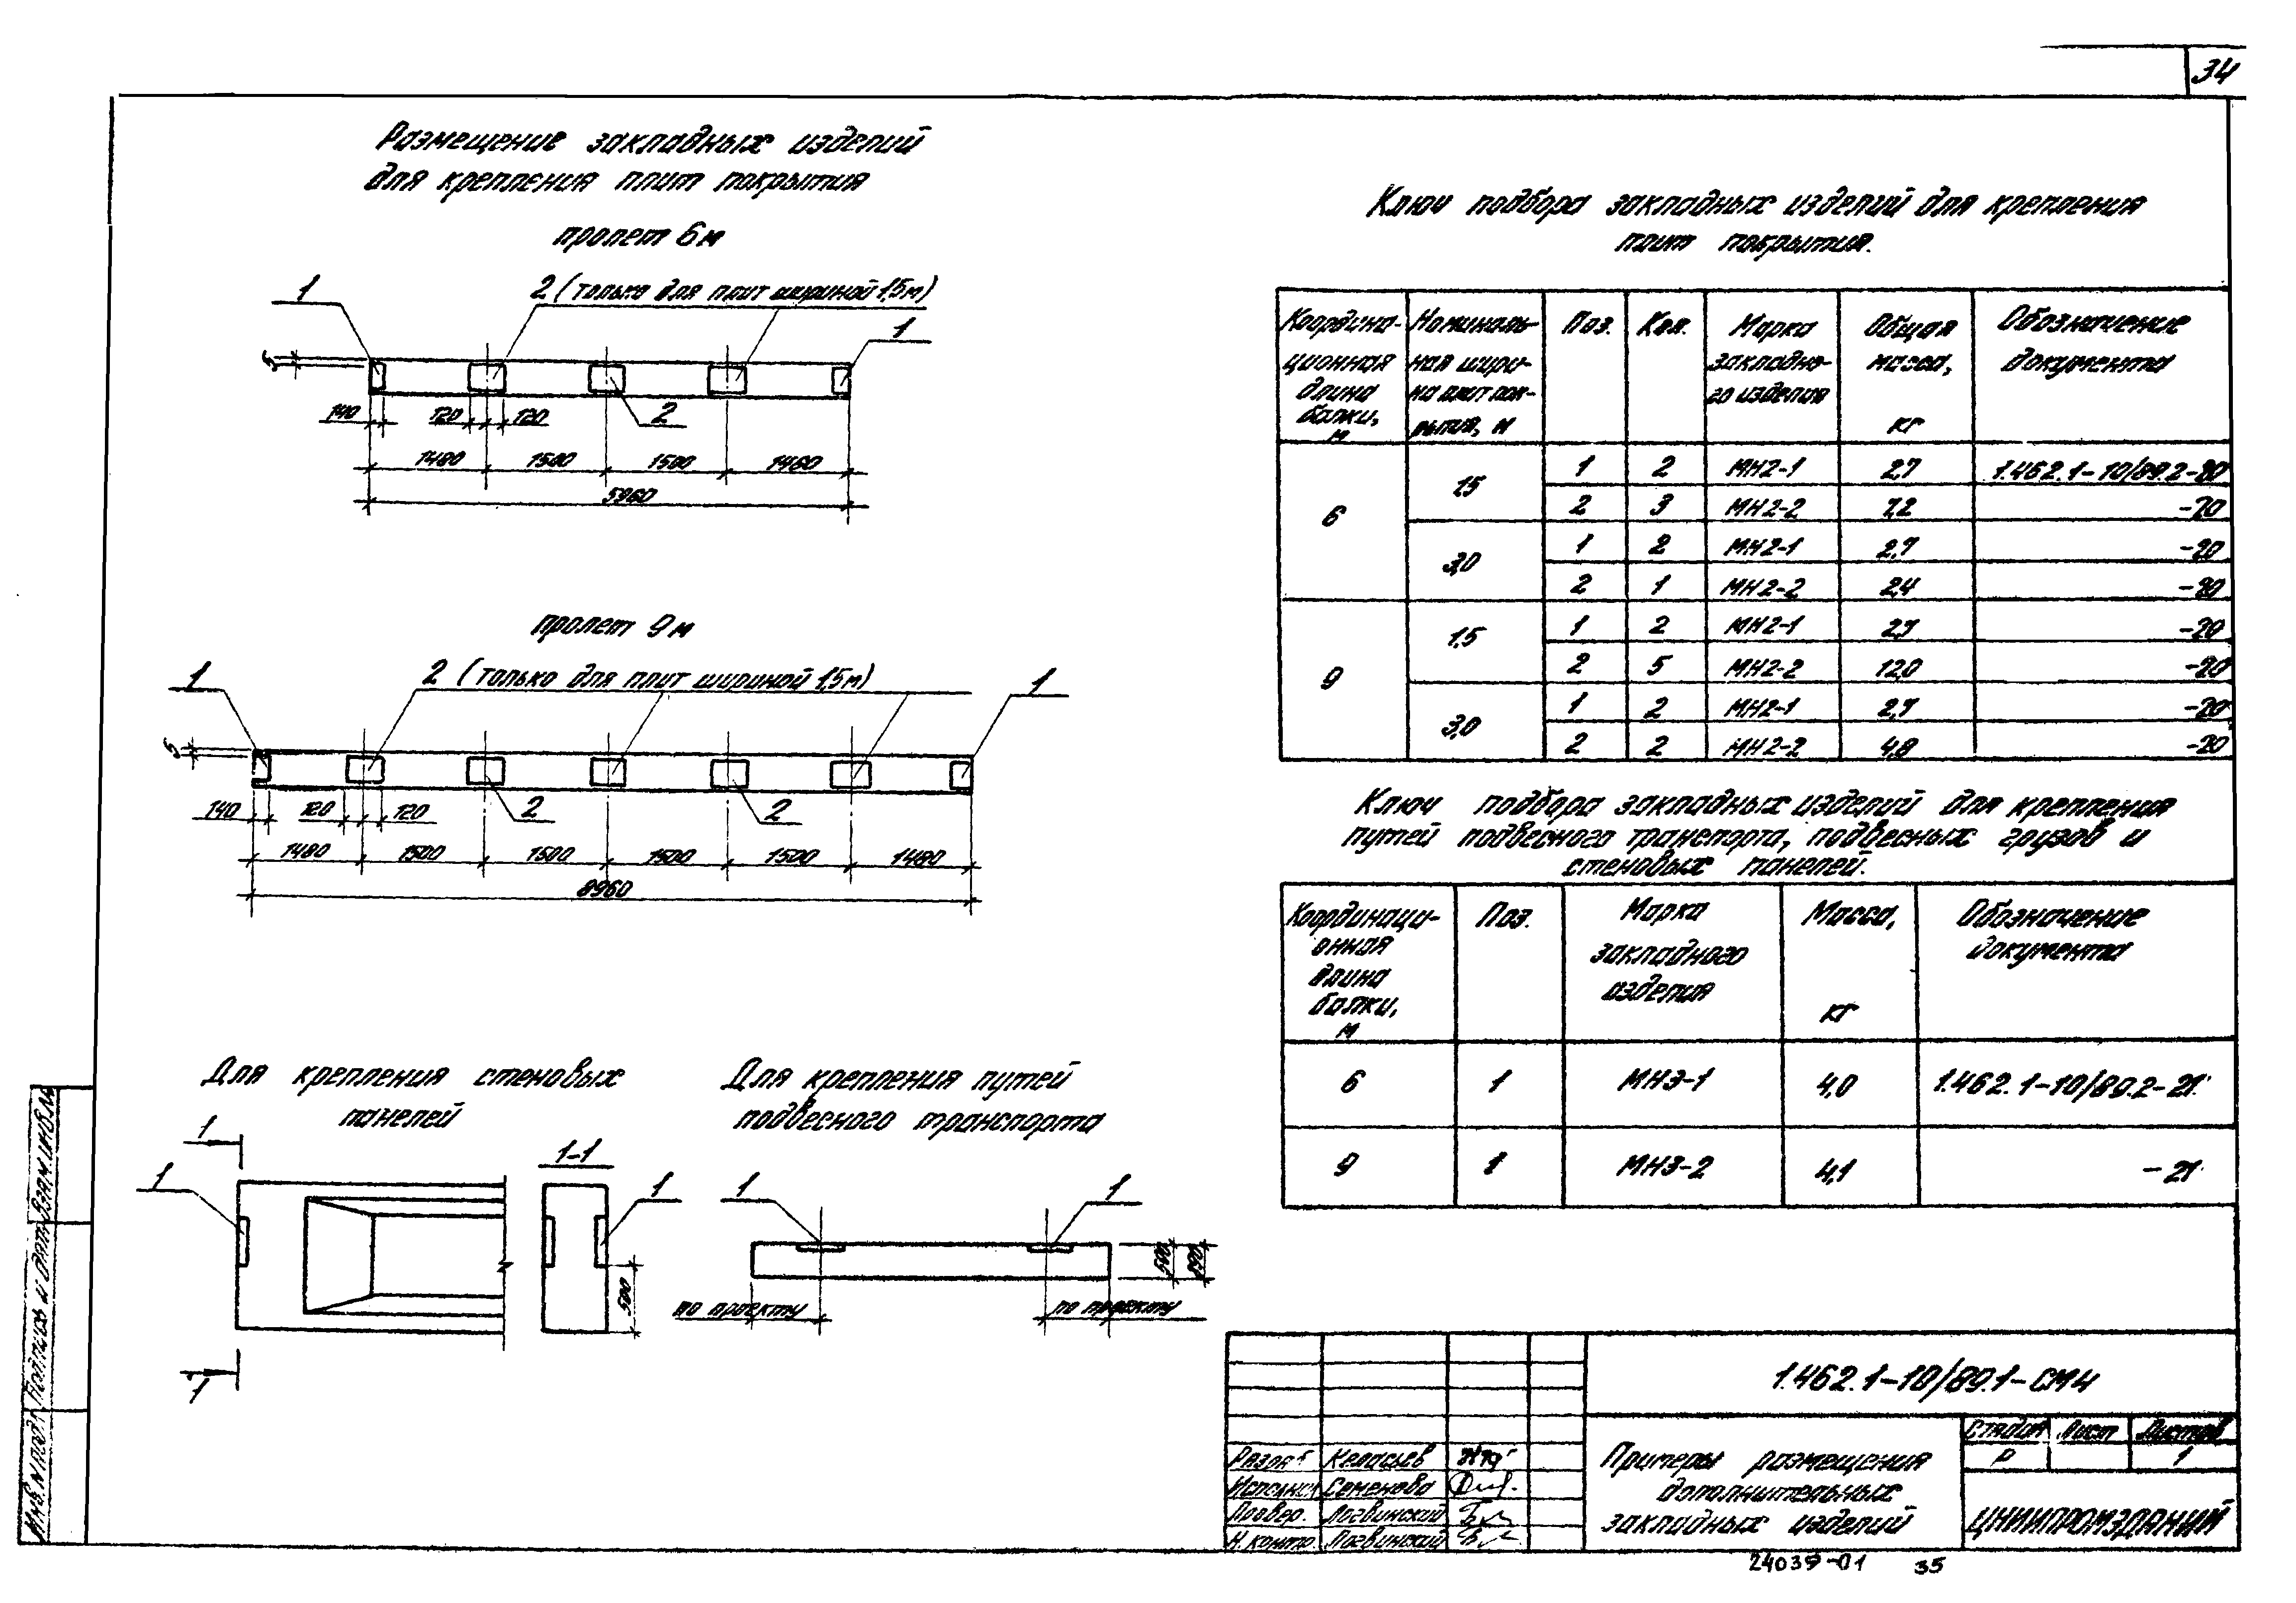 34
Размещение закладных изделий
для крепления плит покрытия
пролет 6 м
1
2 (только для плит шириной 1,5 м)
1
5
140
120
120
2
1480
1500
1500
1480
5960
пролет 9 м
1
2 (только для плит шириной 1,5 м)
1
5
140
120
120
2
2
1480
1500
1500
1500
1500
1480
8960
Для крепления стеновых
панелей
1
1
1-1
1
500
1
Для крепления путей
подвесного транспорта
1
1
590
890
по проекту
по проекту
Ключ подбора закладных изделий для крепления
плит покрытия.
Координа-
ционная
длина
балки,
м
Номиналь-
ная шири-
на плит пок-
рытия, м
Поз.
Кол.
Марка
закладно-
го изделия
Общая
масса,
кг
Обозначение
документа
6
1,5
1 2 МН2-1 2,7 1.462.1-10/89.2-20
2 3 МН2-2 7,2 -20
3,0
1 2 МН2-1 2,7 -20
2 1 МН2-2 2,4 -20
9
1,5
1 2 МН2-1 2,7 -20
2 5 МН2-2 12,0 -20
3,0
1 2 МН2-1 2,7 -20
2 2 МН2-2 4,8 -20
Ключ подбора закладных изделий для крепления
путей подвесного транспорта, подвесных грузов и
стеновых панелей.
Координаци-
онная
длина
балки,
м
Поз.
Марка
закладного
изделия
Масса,
кг
Обозначение
документа
6 1 МН3-1 4,0 1.462.1-10/89.2-21
9 1 МН3-2 4,1 -21
1.462.1-10/89.1-СМ4
Примеры размещения
дополнительных
закладных изделий
Стадия Лист Листов
Р 1
ЦНИИПРОМЗДАНИЙ
Разраб
Исполнил Семенова
Провер. Логвинский
Н.контр. Логвинский
Инв. N подл. Подпись и дата Взам. инв. N
24039-01 35